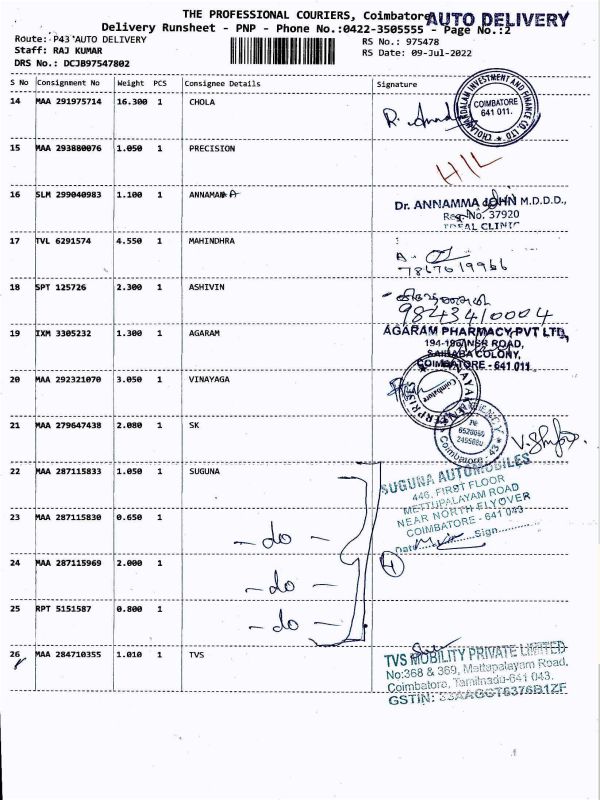 THE PROFESSIONAL COURIERS, Coimbatore
AUTO DELIVERY
Delivery Runsheet - PNP - Phone No.:0422-3505555 - Page No.:2
Route: P43 AUTO DELIVERY
RS No.: 975478
Staff: RAJ KUMAR
RS Date: 09-Jul-2022
DRS No.: DCJB97547802
S No Consignment No Weight PCS Consignee Details Signature
14 MAA 291975714 16.300 1 CHOLA
CHOLAMANDALAM INVESTMENT AND FINANCE CO LTD
COIMBATORE
641 011.
15 MAA 293880076 1.050 1 PRECISION
H/L
16 SLM 299040983 1.100 1 ANNAMA
Dr. ANNAMMA JOHN M.D.D.D.,
Reg.No. 37920
IDEAL CLINIC
17 TVL 6291574 4.550 1 MAHINDHRA
7867019966
18 SPT 125726 2.300 1 ASHIVIN
9843410004
19 IXM 3305232 1.300 1 AGARAM
AGARAM PHARMACY PVT LTD,
194-196, NSR ROAD,
SAIBABA COLONY,
COIMBATORE - 641 011
20 MAA 292321070 3.050 1 VINAYAGA
Coimbatore
21 MAA 279647438 2.080 1 SK
Coimbatore - 43
22 MAA 287115833 1.050 1 SUGUNA
SUGUNA AUTOMOBILES
446, FIRST FLOOR
METTUPALAYAM ROAD
NEAR NORTH FLYOVER
COIMBATORE - 641 043
Date Sign
23 MAA 287115830 0.650 1
- do -
24 MAA 287115969 2.000 1
- do -
4
25 RPT 5151587 0.800 1
- do -
26 MAA 284710355 1.010 1 TVS
TVS MOBILITY PRIVATE LIMITED
No:368 & 369, Mettupalayam Road,
Coimbatore, Tamilnadu-641 043.
GSTIN: 33AAGCT6376B1ZF